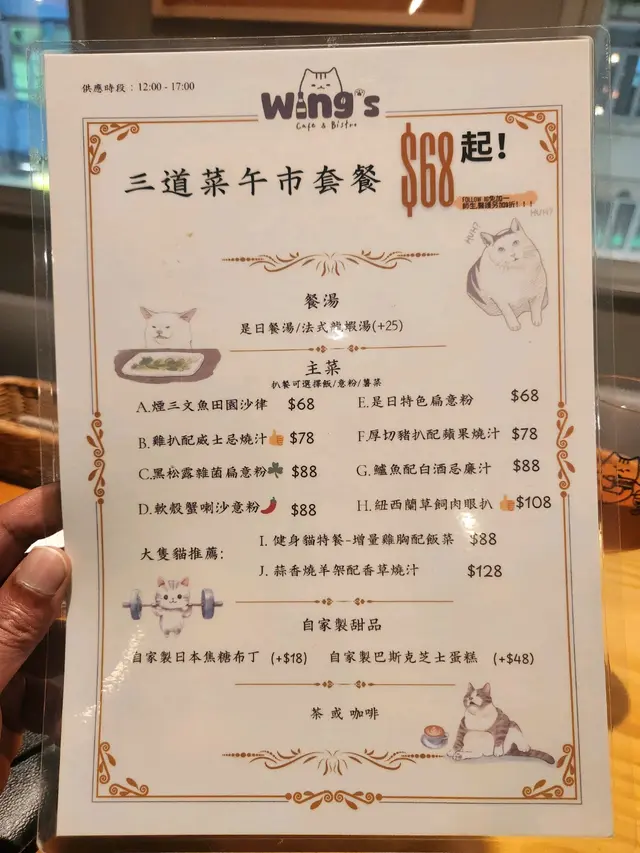 供應時段：12:00 - 17:00
Wing's
Cafe & Bistro
三道菜午市套餐 $68 起!
HUH?
HUH?
餐湯
是日餐湯/法式龍蝦湯(+25)
主菜
扒餐可選擇飯/意粉/薯菜
A.煙三文魚田園沙律 $68
E.是日特色扁意粉 $68
B.雞扒配威士忌燒汁👍 $78
F.厚切豬扒配蘋果燒汁 $78
C.黑松露雜菌扁意粉☘ $88
G.鱸魚配白酒忌廉汁 $88
D.軟殼蟹喇沙意粉🌶 $88
H.紐西蘭草飼肉眼扒 👍$108
大隻貓推薦:
I. 健身貓特餐-增量雞胸配飯菜 $88
J. 蒜香燒羊架配香草燒汁 $128
自家製甜品
自家製日本焦糖布丁 (+$18) 自家製巴斯克芝士蛋糕 (+$48)
茶 或 咖啡